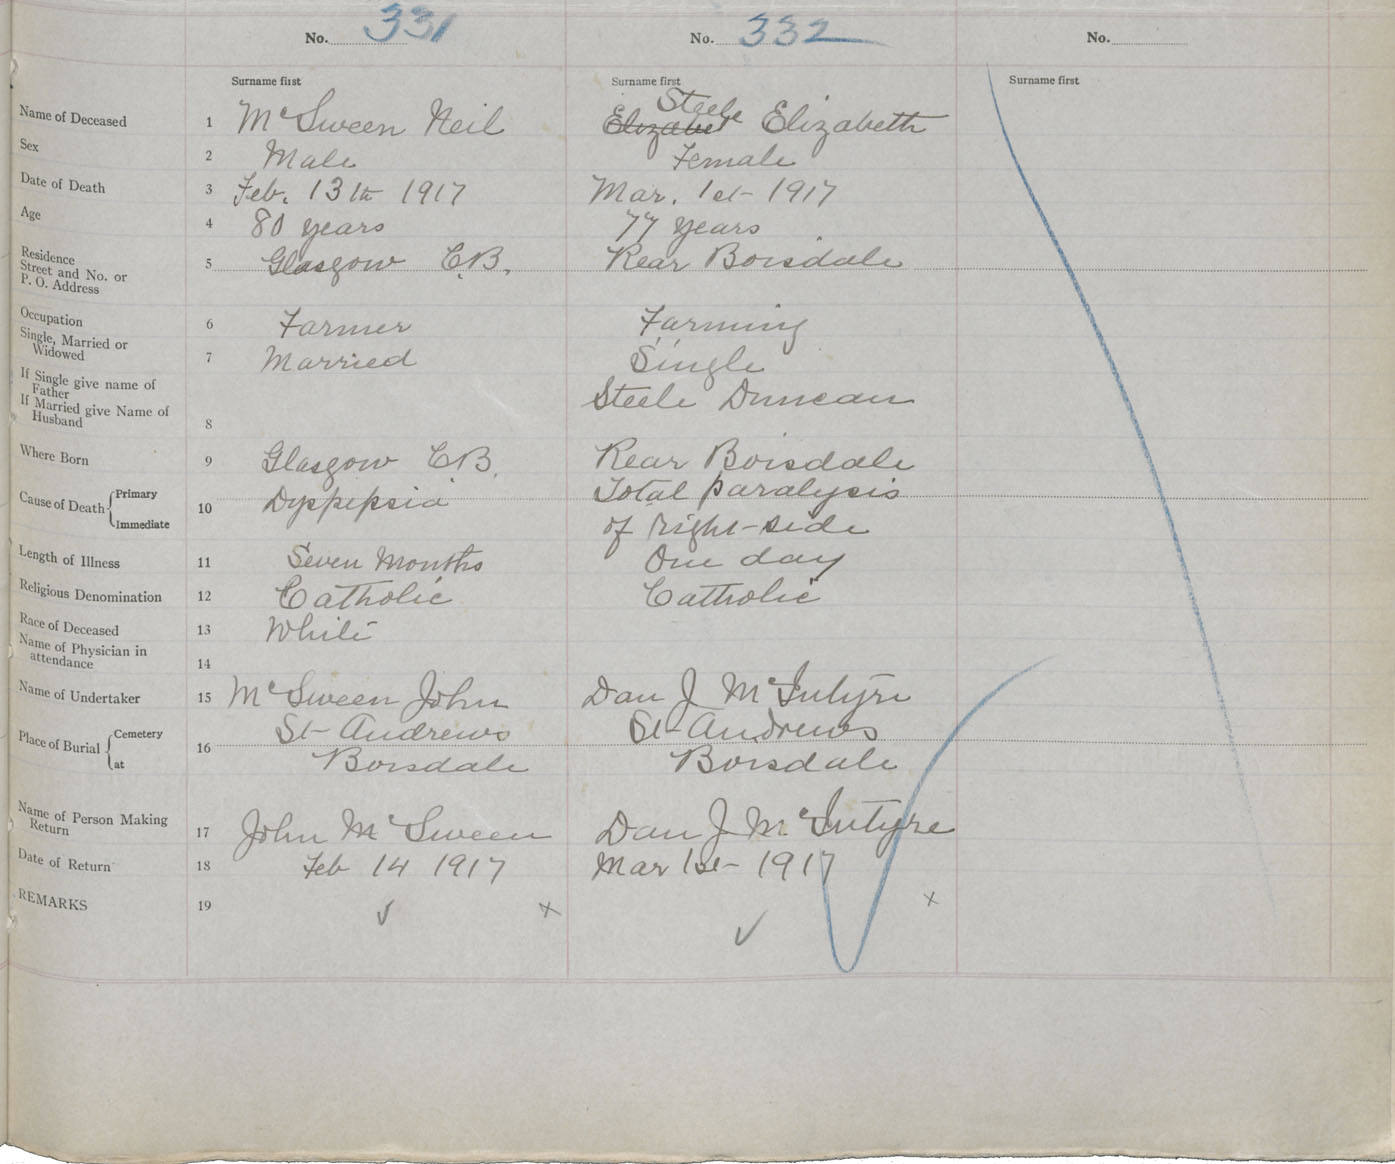 No. 331 No. 332 No.
Surname first Surname first Surname first
Steele
Name of Deceased 1 McSween Neil Elizabet Elizabeth
Sex 2 Male Female
Date of Death 3 Feb. 13th 1917 Mar. 1st 1917
Age 4 80 years 77 years
Residence
Street and No. or
P. O. Address 5 Glasgow C.B. Rear Boisdale
Occupation 6 Farmer Farming
Single, Married or
Widowed 7 Married Single
If Single give name of
Father
If Married give Name of
Husband 8 Steele Duncan
Where Born 9 Glasgow CB. Rear Boisdale
Cause of Death { Primary Immediate 10 Dyspepsia Total paralysis
of right-side
Length of Illness 11 Seven Months One day
Religious Denomination 12 Catholic Catholic
Race of Deceased 13 White
Name of Physician in
attendance 14
Name of Undertaker 15 McSween John Dan J McIntyre
Place of Burial { Cemetery at 16 St Andrews St Andrews
Boisdale Boisdale
Name of Person Making
Return 17 John McSween Dan J McIntyre
Date of Return 18 Feb 14 1917 Mar 1st 1917
REMARKS 19 ✓ x ✓ x